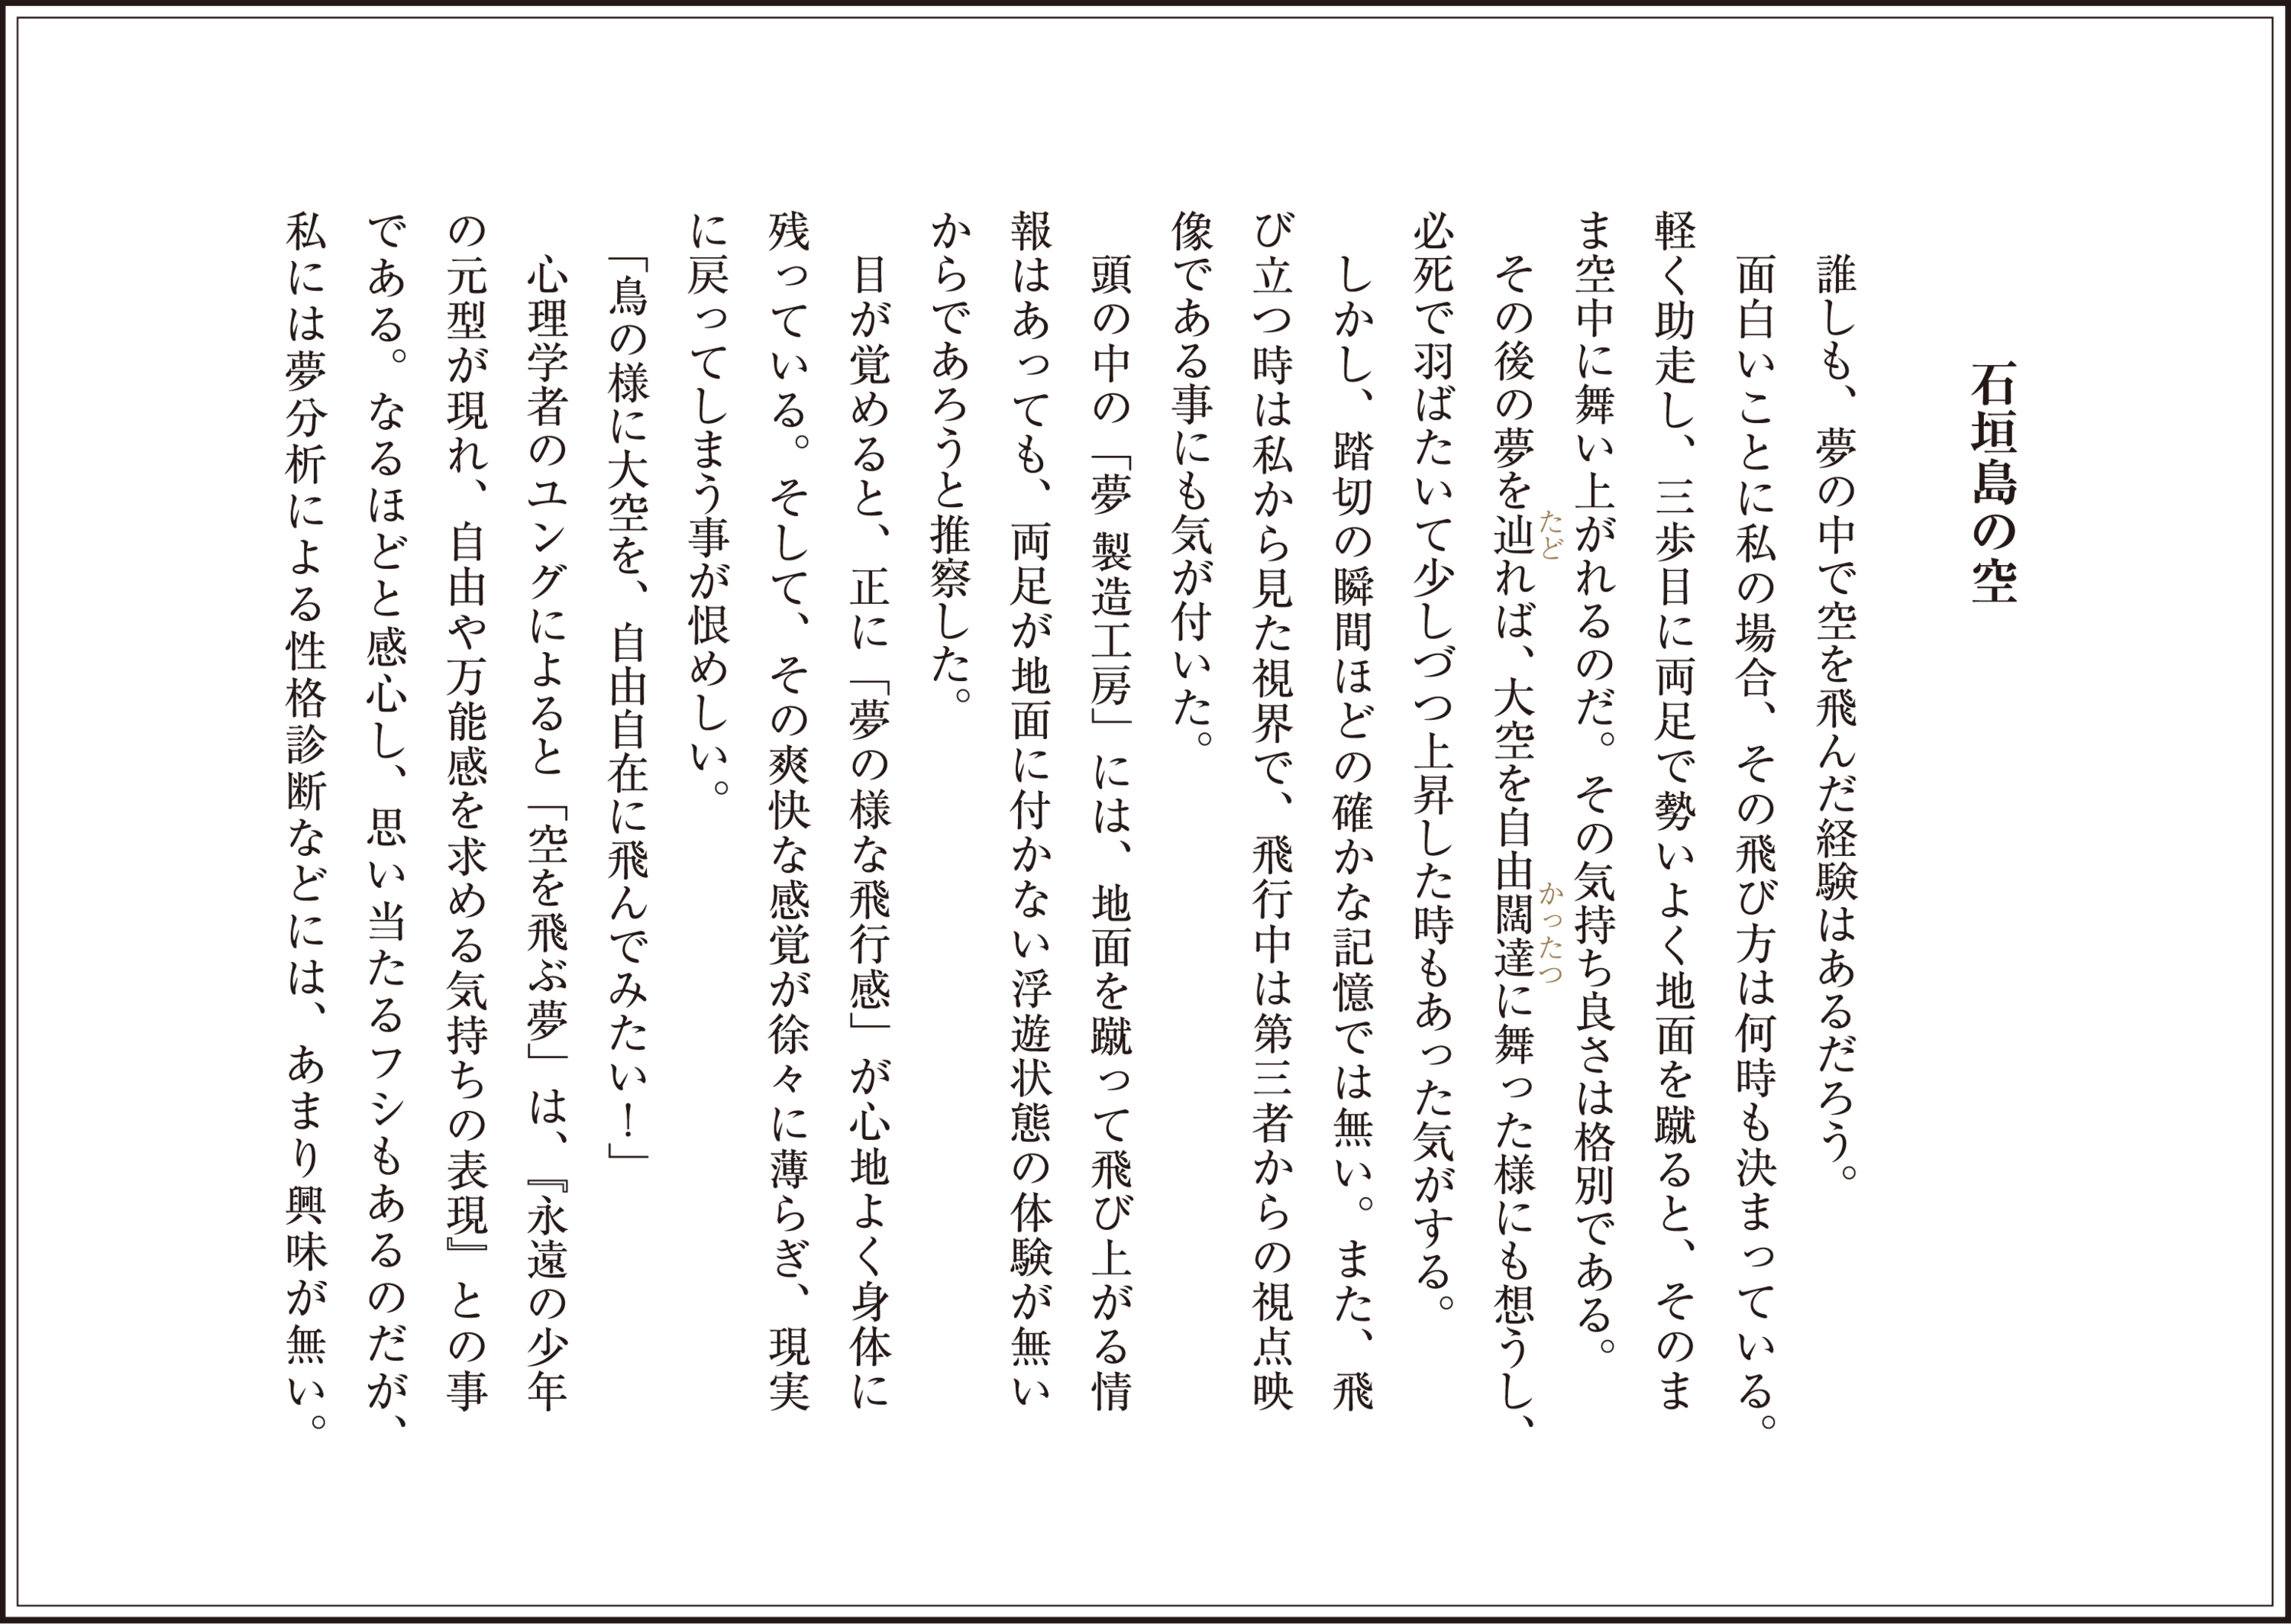 石垣島の空
誰しも、夢の中で空を飛んだ経験はあるだろう。
面白いことに私の場合、その飛び方は何時も決まっている。
軽く助走し、三歩目に両足で勢いよく地面を蹴ると、そのま
ま空中に舞い上がれるのだ。その気持ち良さは格別である。
その後の夢を辿れば、大空を自由闊達に舞った様にも想うし、
たど
かったつ
必死で羽ばたいて少しづつ上昇した時もあった気がする。
しかし、踏切の瞬間ほどの確かな記憶では無い。また、飛
び立つ時は私から見た視界で、飛行中は第三者からの視点映
像である事にも気が付いた。
頭の中の「夢 製造工房」には、地面を蹴って飛び上がる情
報はあっても、両足が地面に付かない浮遊状態の体験が無い
からであろうと推察した。
目が覚めると、正に「夢の様な飛行感」が心地よく身体に
残っている。そして、その爽快な感覚が徐々に薄らぎ、現実
に戻ってしまう事が恨めしい。
「鳥の様に大空を、自由自在に飛んでみたい！」
心理学者のユングによると「空を飛ぶ夢」は、『永遠の少年
の元型が現れ、自由や万能感を求める気持ちの表現』との事
である。なるほどと感心し、思い当たるフシもあるのだが、
私には夢分析による性格診断などには、あまり興味が無い。